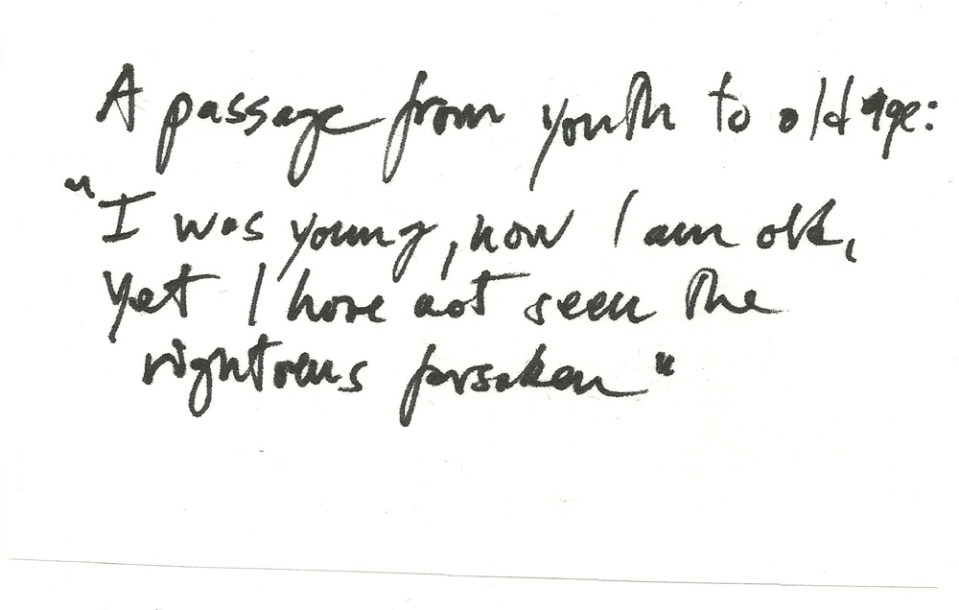 A passage from youth to old age:
"I was young, now I am old,
yet I have not seen the
righteous forsaken"